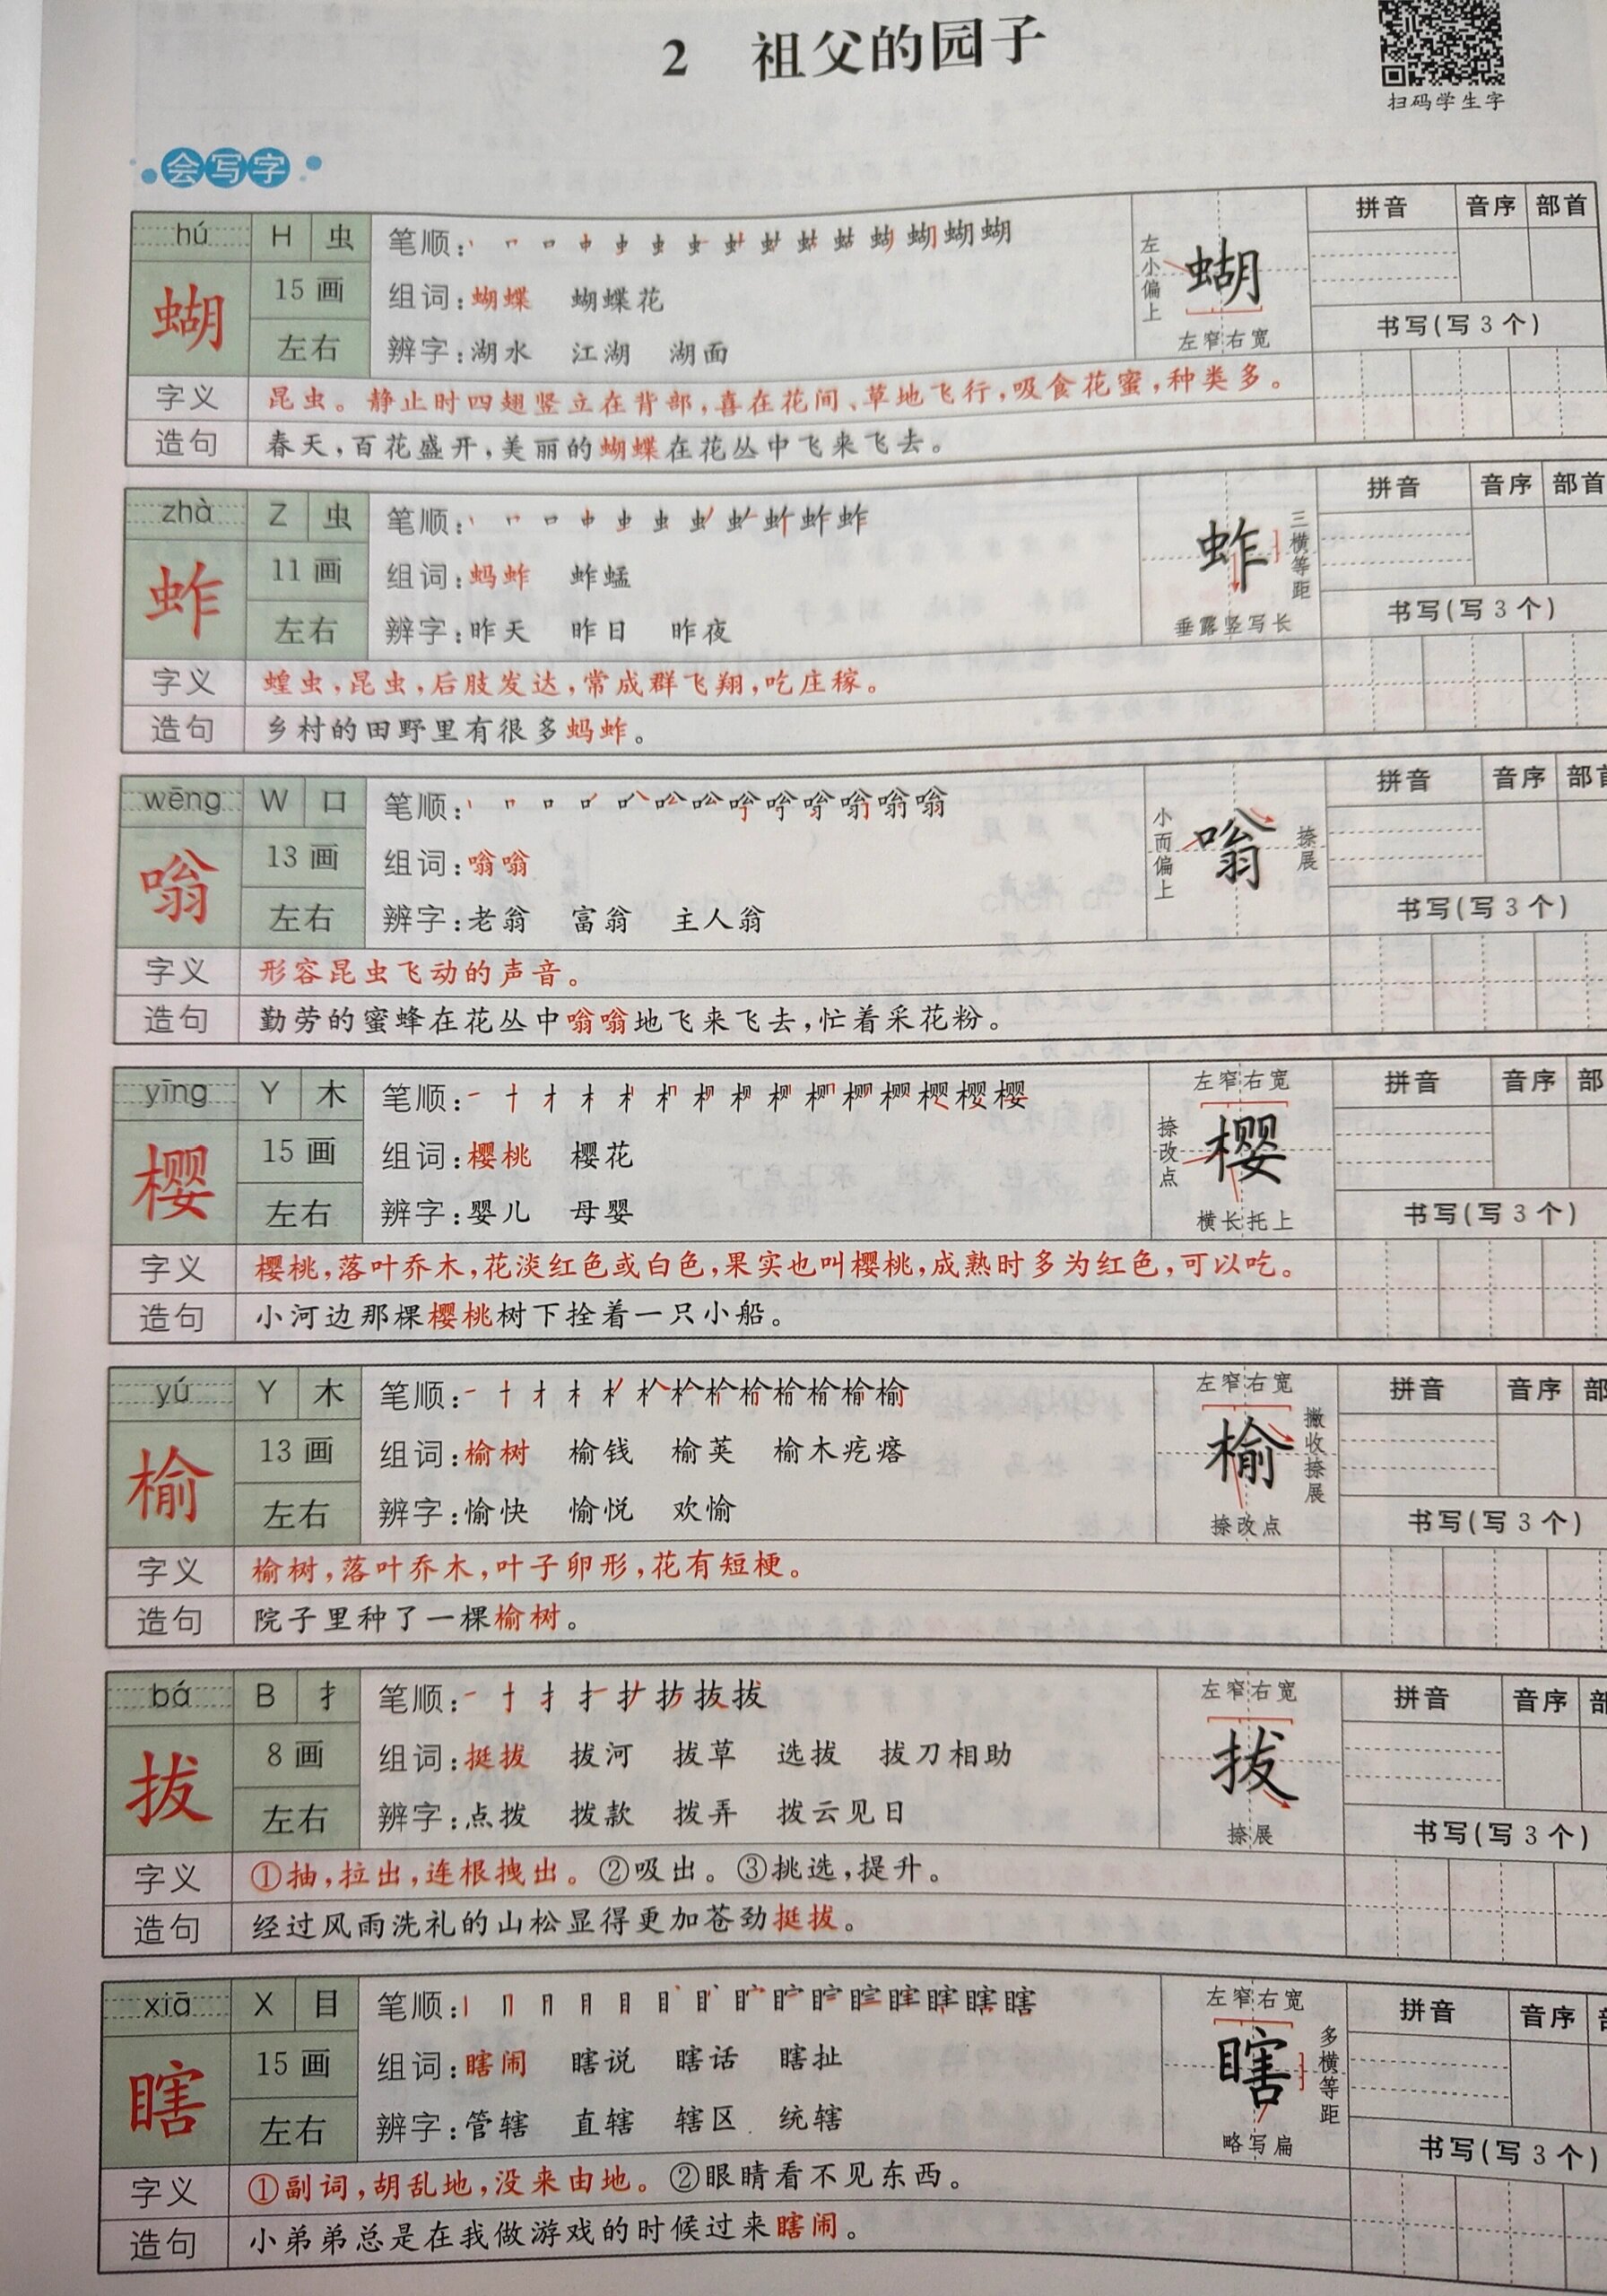 2 祖父的园子
扫码学生字
会写字
hú H 虫
蝴
15 画
左右
笔顺:
组词:蝴蝶 蝴蝶花
辨字:湖水 江湖 湖面
左小偏上
蝴
左窄右宽
拼音 音序 部首
书写(写3个)
字义 昆虫。静止时四翅竖立在背部,喜在花间、草地飞行,吸食花蜜,种类多。
造句 春天,百花盛开,美丽的蝴蝶在花丛中飞来飞去。
zhà Z 虫
蚱
11 画
左右
笔顺:
组词:蚂蚱 蚱蜢
辨字:昨天 昨日 昨夜
蚱
三横等距
垂露竖写长
拼音 音序 部首
书写(写3个)
字义 蝗虫,昆虫,后肢发达,常成群飞翔,吃庄稼。
造句 乡村的田野里有很多蚂蚱。
wēng W 口
嗡
13 画
左右
笔顺:
组词:嗡嗡
辨字:老翁 富翁 主人翁
小而偏上
嗡
捺展
拼音 音序 部首
书写(写3个)
字义 形容昆虫飞动的声音。
造句 勤劳的蜜蜂在花丛中嗡嗡地飞来飞去,忙着采花粉。
yīng Y 木
樱
15 画
左右
笔顺:
组词:樱桃 樱花
辨字:婴儿 母婴
左窄右宽
捺改点
樱
横长托上
拼音 音序 部
书写(写3个)
字义 樱桃,落叶乔木,花淡红色或白色,果实也叫樱桃,成熟时多为红色,可以吃。
造句 小河边那棵樱桃树下拴着一只小船。
yú Y 木
榆
13 画
左右
笔顺:
组词:榆树 榆钱 榆荚 榆木疙瘩
辨字:愉快 愉悦 欢愉
左窄右宽
榆
撇收捺展
捺改点
拼音 音序 部
书写(写3个)
字义 榆树,落叶乔木,叶子卵形,花有短梗。
造句 院子里种了一棵榆树。
bá B 扌
拔
8 画
左右
笔顺:
组词:挺拔 拔河 拔草 选拔 拔刀相助
辨字:点拨 拨款 拨弄 拨云见日
左窄右宽
拔
捺展
拼音 音序 部
书写(写3个)
字义 ①抽,拉出,连根拽出。②吸出。③挑选,提升。
造句 经过风雨洗礼的山松显得更加苍劲挺拔。
xiā X 目
瞎
15 画
左右
笔顺:
组词:瞎闹 瞎说 瞎话 瞎扯
辨字:管辖 直辖 辖区 统辖
左窄右宽
瞎
多横等距
略写扁
拼音 音序
书写(写3个)
字义 ①副词,胡乱地,没来由地。②眼睛看不见东西。
造句 小弟弟总是在我做游戏的时候过来瞎闹。